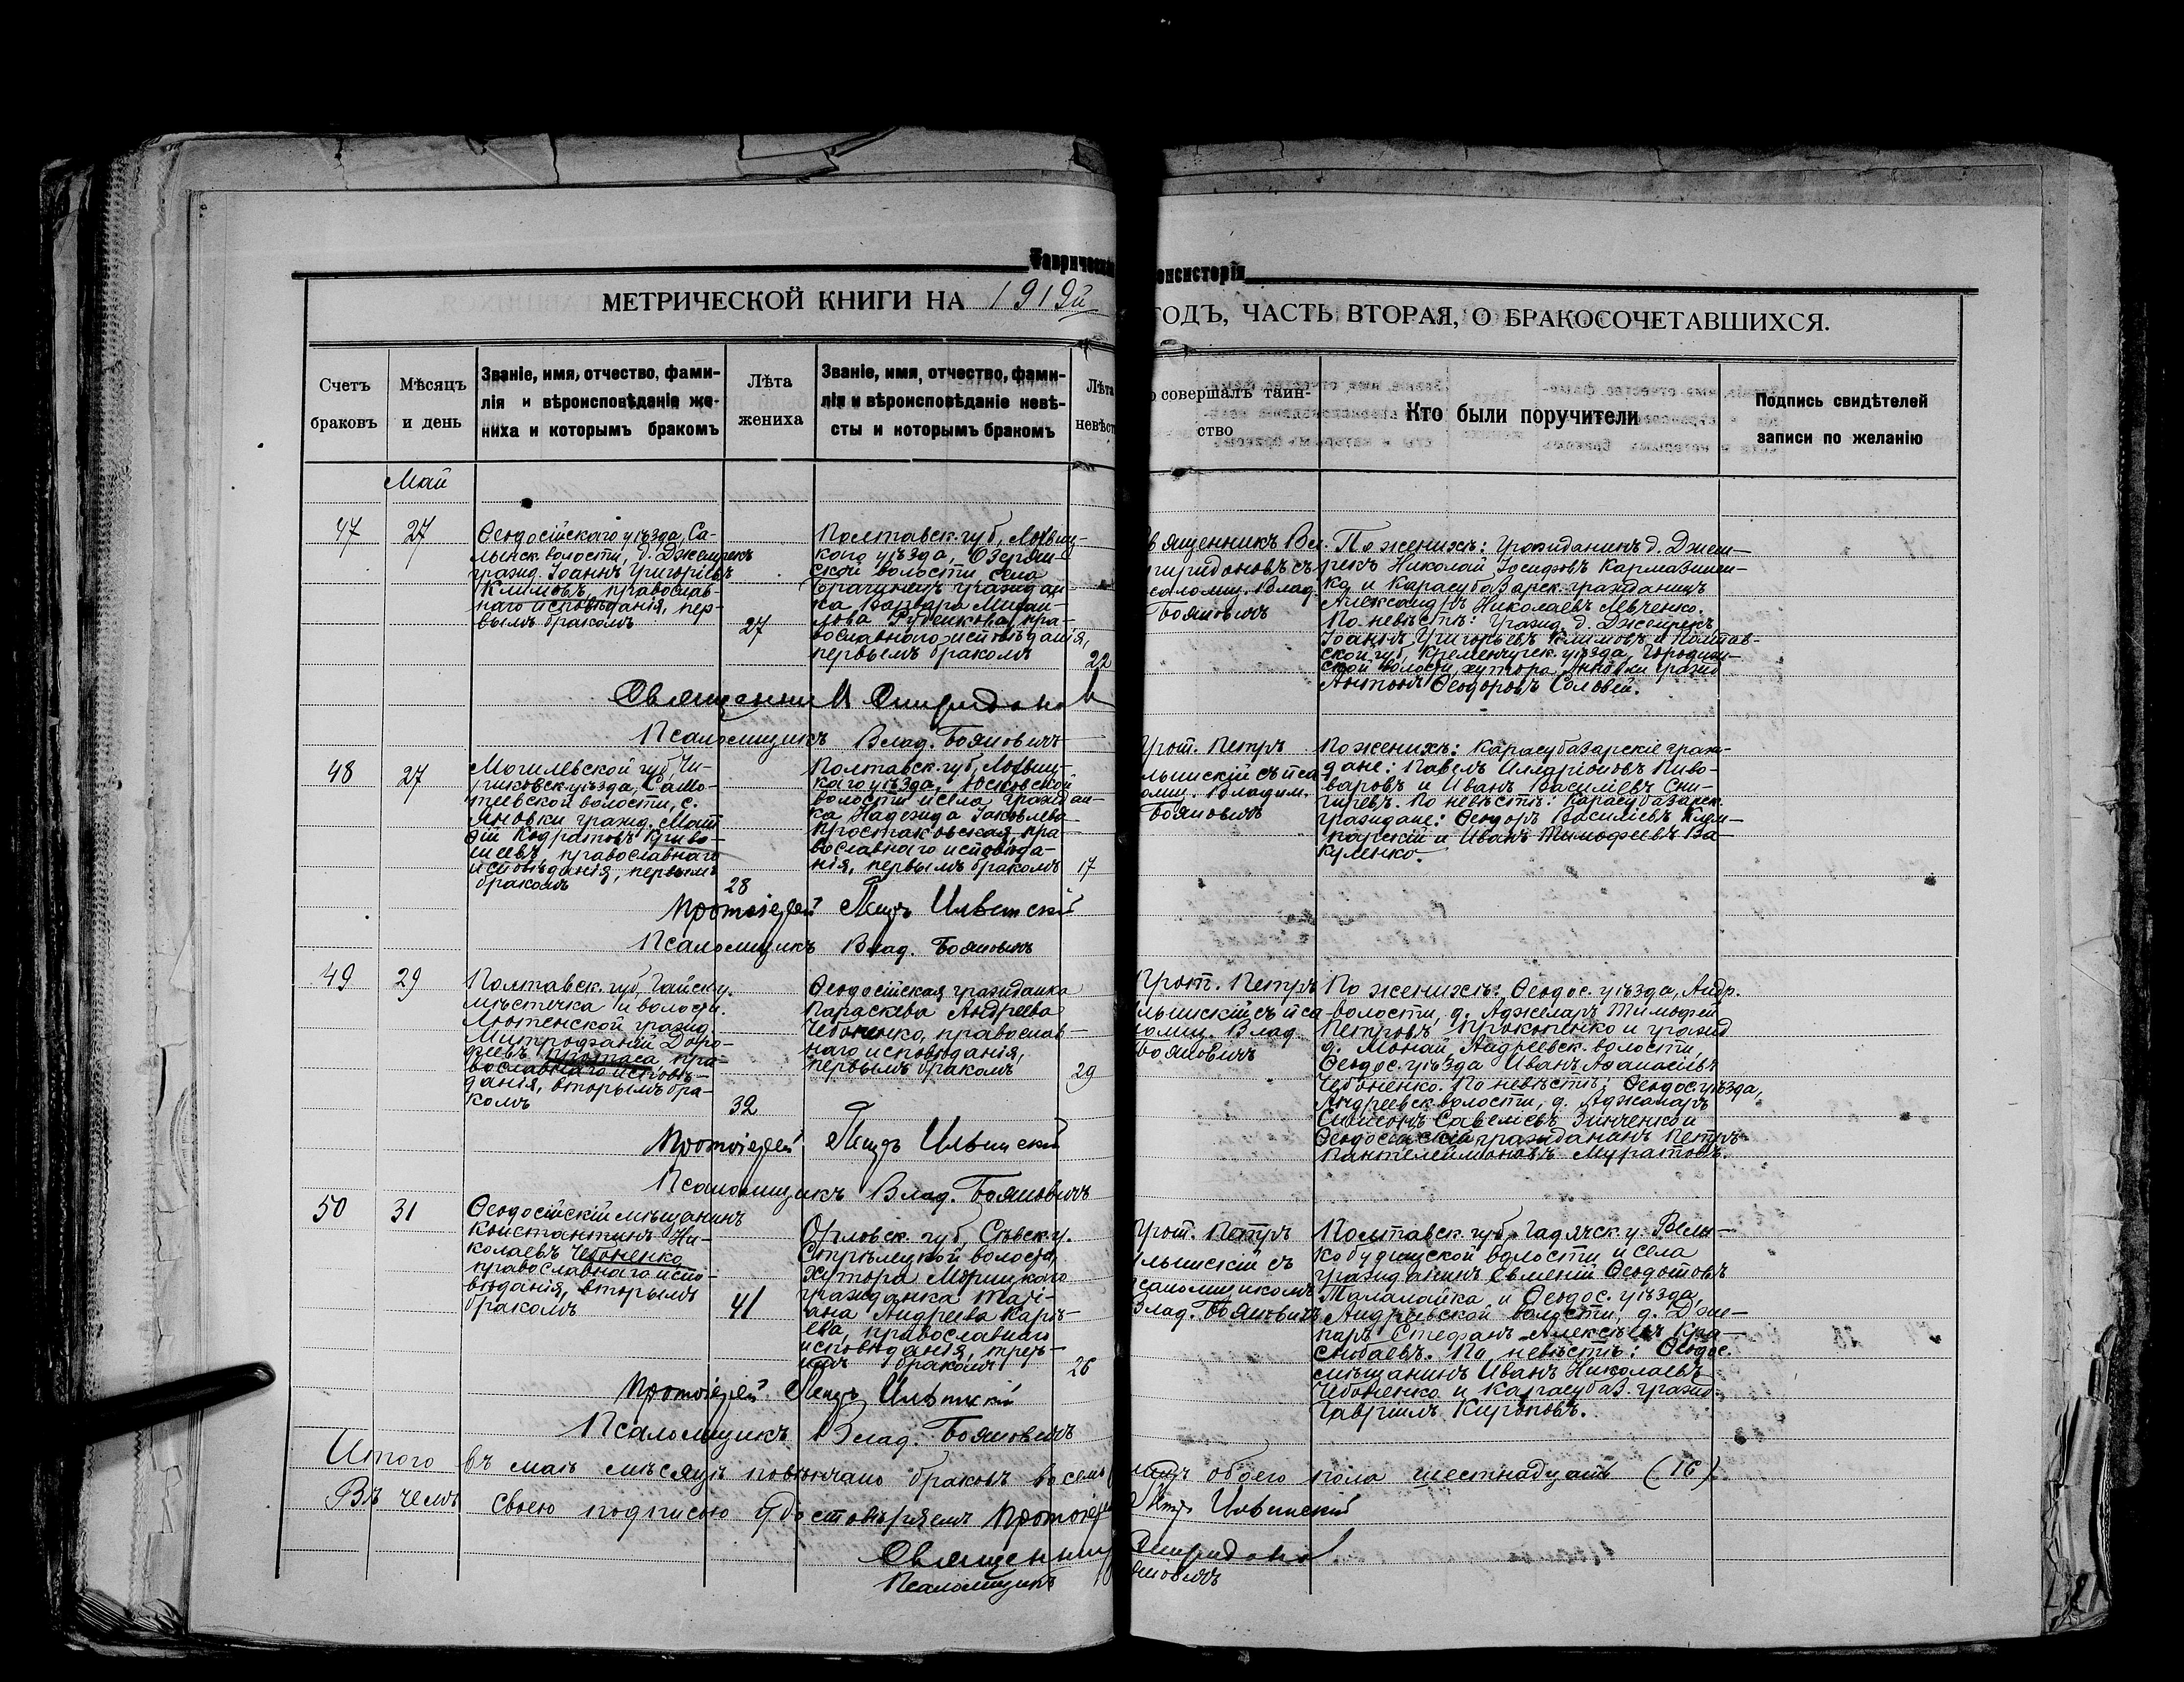 Таврической
онсисторіи
МЕТРИЧЕСКОЙ КНИГИ НА 1919й
ГОДЪ, ЧАСТЬ ВТОРАЯ, О БРАКОСОЧЕТАВШИХСЯ.
Счетъ браковъ
Мѣсяцъ и день
Званіе, имя, отчество, фами-
лія и вѣроисповѣданіе же-
ниха и которымъ бракомъ
Лѣта жениха
Званіе, имя, отчество, фами-
лія и вѣроисповѣданіе невѣ-
сты и которымъ бракомъ
Лѣта
невѣст
о совершалъ таин-
ство
Кто были поручители
Подпись свидѣтелей
записи по желанію
Май
47
27
Ѳеодосійскаго уѣзда, Са-
лынск. волости, д. Джеирекъ
гражд. Іоаннъ Григоріевъ
Климовъ, православ-
наго исповѣданія, пер-
вымъ бракомъ
27
Полтавск. губ, Лохвиц-
каго уѣзда, Озерян-
ской волости села
граждан-
ка Варвара Михаи-
лова Руденкова, пра-
вославнаго исповѣданія,
первымъ бракомъ
22
вященникъ Вл.
пиридоновъ съ
саломщ. Влад.
Бояновичъ
По женихѣ: гражданинъ д. Джеи-
рекъ Николай Іосифовъ Кармазинен-
ко и Карасубазарск. гражданинъ
Александръ Николаевъ Левченко.
По невѣстѣ: гражд. д. Джеирекъ
Іоаннъ Григорьевъ Климовъ и Полтав-
ской губ, Кременчугск. уѣзда, Городищ-
ской волости, хутора Анновки гражд
Антонъ Ѳеодоровъ Соловей.
Священникъ Спиридоновъ
Псаломщикъ Влад. Бояновичъ
48
27
Могилевской губ, Чи-
риковск. уѣзда, Само-
тѣевской волости, с.
Яновки гражд. Мат
ѳій Кодратовъ Криво-
шеевъ, православнаго
исповѣданія, первымъ
бракомъ
28
Полтавск. губ, Лохвиц-
каго уѣзда, Юсковской
волости и села граждан-
ка Надежда Іаковлева
Простаковская, пра-
вославнаго исповѣда-
нія, первымъ бракомъ
17
Прот. Петръ
льинскій съ пса
омщ. Владим.
Бояновичъ
По женихѣ: Карасубазарскіе граж-
дане: Павелъ Илларіоновъ Пиво-
варовъ и Иванъ Васильевъ Сни-
гиревъ. По невѣстѣ: Карасубазарск.
граждане: Ѳеодоръ Василіевъ
и Иванъ Тимоѳеевъ Ва-
куленко.
Протоіерей Петръ Ильинскій
Псаломщикъ Влад. Бояновичъ
49
29
Полтавск. губ, у.
мѣстечка и волости
Лютенской гражд
Митрофаній Доро-
феевъ Протаса, пра-
вославнаго исповѣ-
данія, вторымъ бра-
комъ
32
Ѳеодосійская гражданка
Параскева Андреева
Чебоненко, православ-
наго исповѣданія,
первымъ бракомъ
29
Прот. Петръ
льинскій съ пса
ломщ. Влад.
Бояновичъ
По женихѣ: Ѳеодос. уѣзда, Андр.
волости, д. Аджеларъ Тимофей
Петровъ Прокопенко и гражд
д. Монай Андреевск. волости,
Ѳеодос. уѣзда Иванъ Аѳанасіевъ
Чебоненко. По невѣстѣ: Ѳеодос. уѣзда,
Андреевск. волости, д. Аджеларъ
Симеонъ Савеліевъ Зинченко и
Ѳеодосійскій гражданинъ Петръ
Пантелеймоновъ Муратовъ.
Протоіерей Петръ Ильинскій
Псаломщикъ Влад. Бояновичъ
50
31
Ѳеодосійскій мѣщанинъ
Константинъ Ни-
колаевъ Чебоненко
православнаго испо-
вѣданія, вторымъ
бракомъ
41
Орловск. губ, Сѣвск. у.
Стрѣлецкой волости,
хутора Морицкаго
гражданка Тати-
ана Андреева Карѣ-
ева, православнаго
исповѣданія, треть-
имъ бракомъ
26
Прот. Петръ
льинскій съ
псаломщикомъ
Влад. Бояновичъ
Полтавск. губ, Гадячск. у. Вели-
кобудищской волости и села
гражданинъ Евменій Ѳеодотовъ
Талалайка и Ѳеодос. уѣзда,
Андреевской волости, д. Дже-
паръ Стефанъ Алексѣевъ Кра-
снобаевъ. По невѣстѣ: Ѳеодос.
мѣщанинъ Иванъ Николаевъ
Чебоненко и Карасубаз. гражд.
Гавріилъ Кироповъ.
Протоіерей Петръ Ильинскій
Псаломщикъ Влад. Бояновичъ
Итого въ маѣ мѣсяцѣ повѣнчано браковъ восемь лицъ обоего пола шестнадцать (16)
Въ чемъ своею подписью удостовѣряемъ Протоіерей Петръ Ильинскій
Священникъ Спиридоновъ
Псаломщикъ Бояновичъ